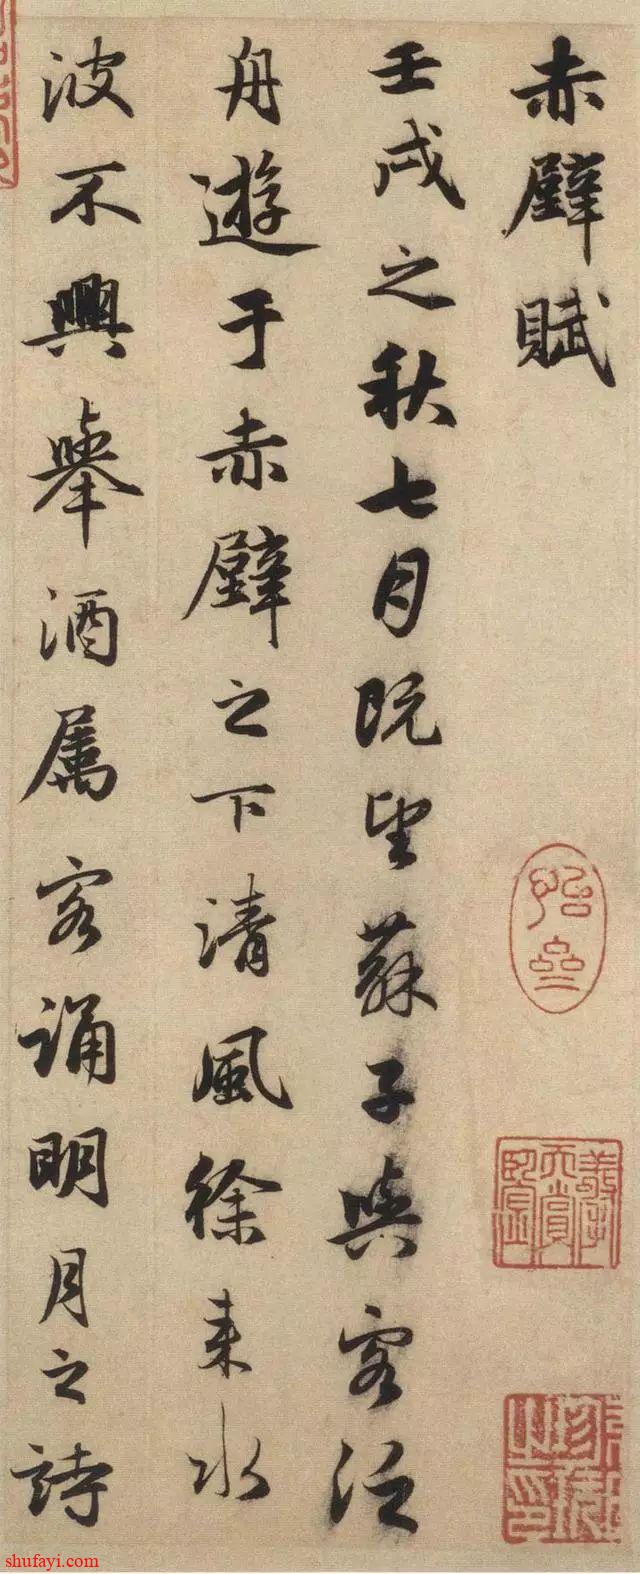 赤壁賦
壬戌之秋七月既望蘇子與客泛
舟遊于赤壁之下清風徐来水
波不興舉酒属客誦明月之詩
shufayi.com